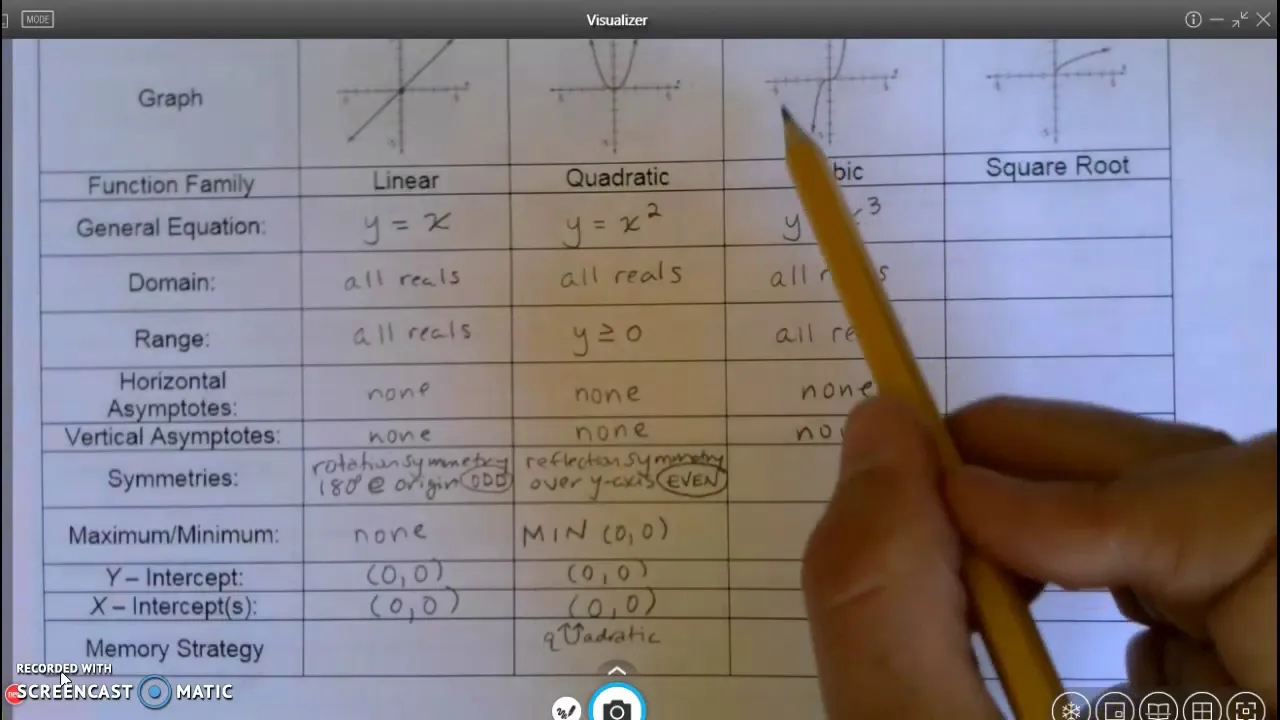 MODE
Visualizer
Graph
Function Family Linear Quadratic bic Square Root
General Equation: y = x y = x² y 3
Domain: all reals all reals all r s
Range: all reals y ≥ 0 all re
Horizontal
Asymptotes: none none none
Vertical Asymptotes: none none no
Symmetries: rotation symmetry
180° @ origin ODD
reflection symmetry
over y-axis EVEN
Maximum/Minimum: none MIN (0,0)
Y – Intercept: (0,0) (0,0)
X – Intercept(s): (0,0) (0,0)
Memory Strategy q↑U↑adratic
RECORDED WITH
SCREENCAST MATIC